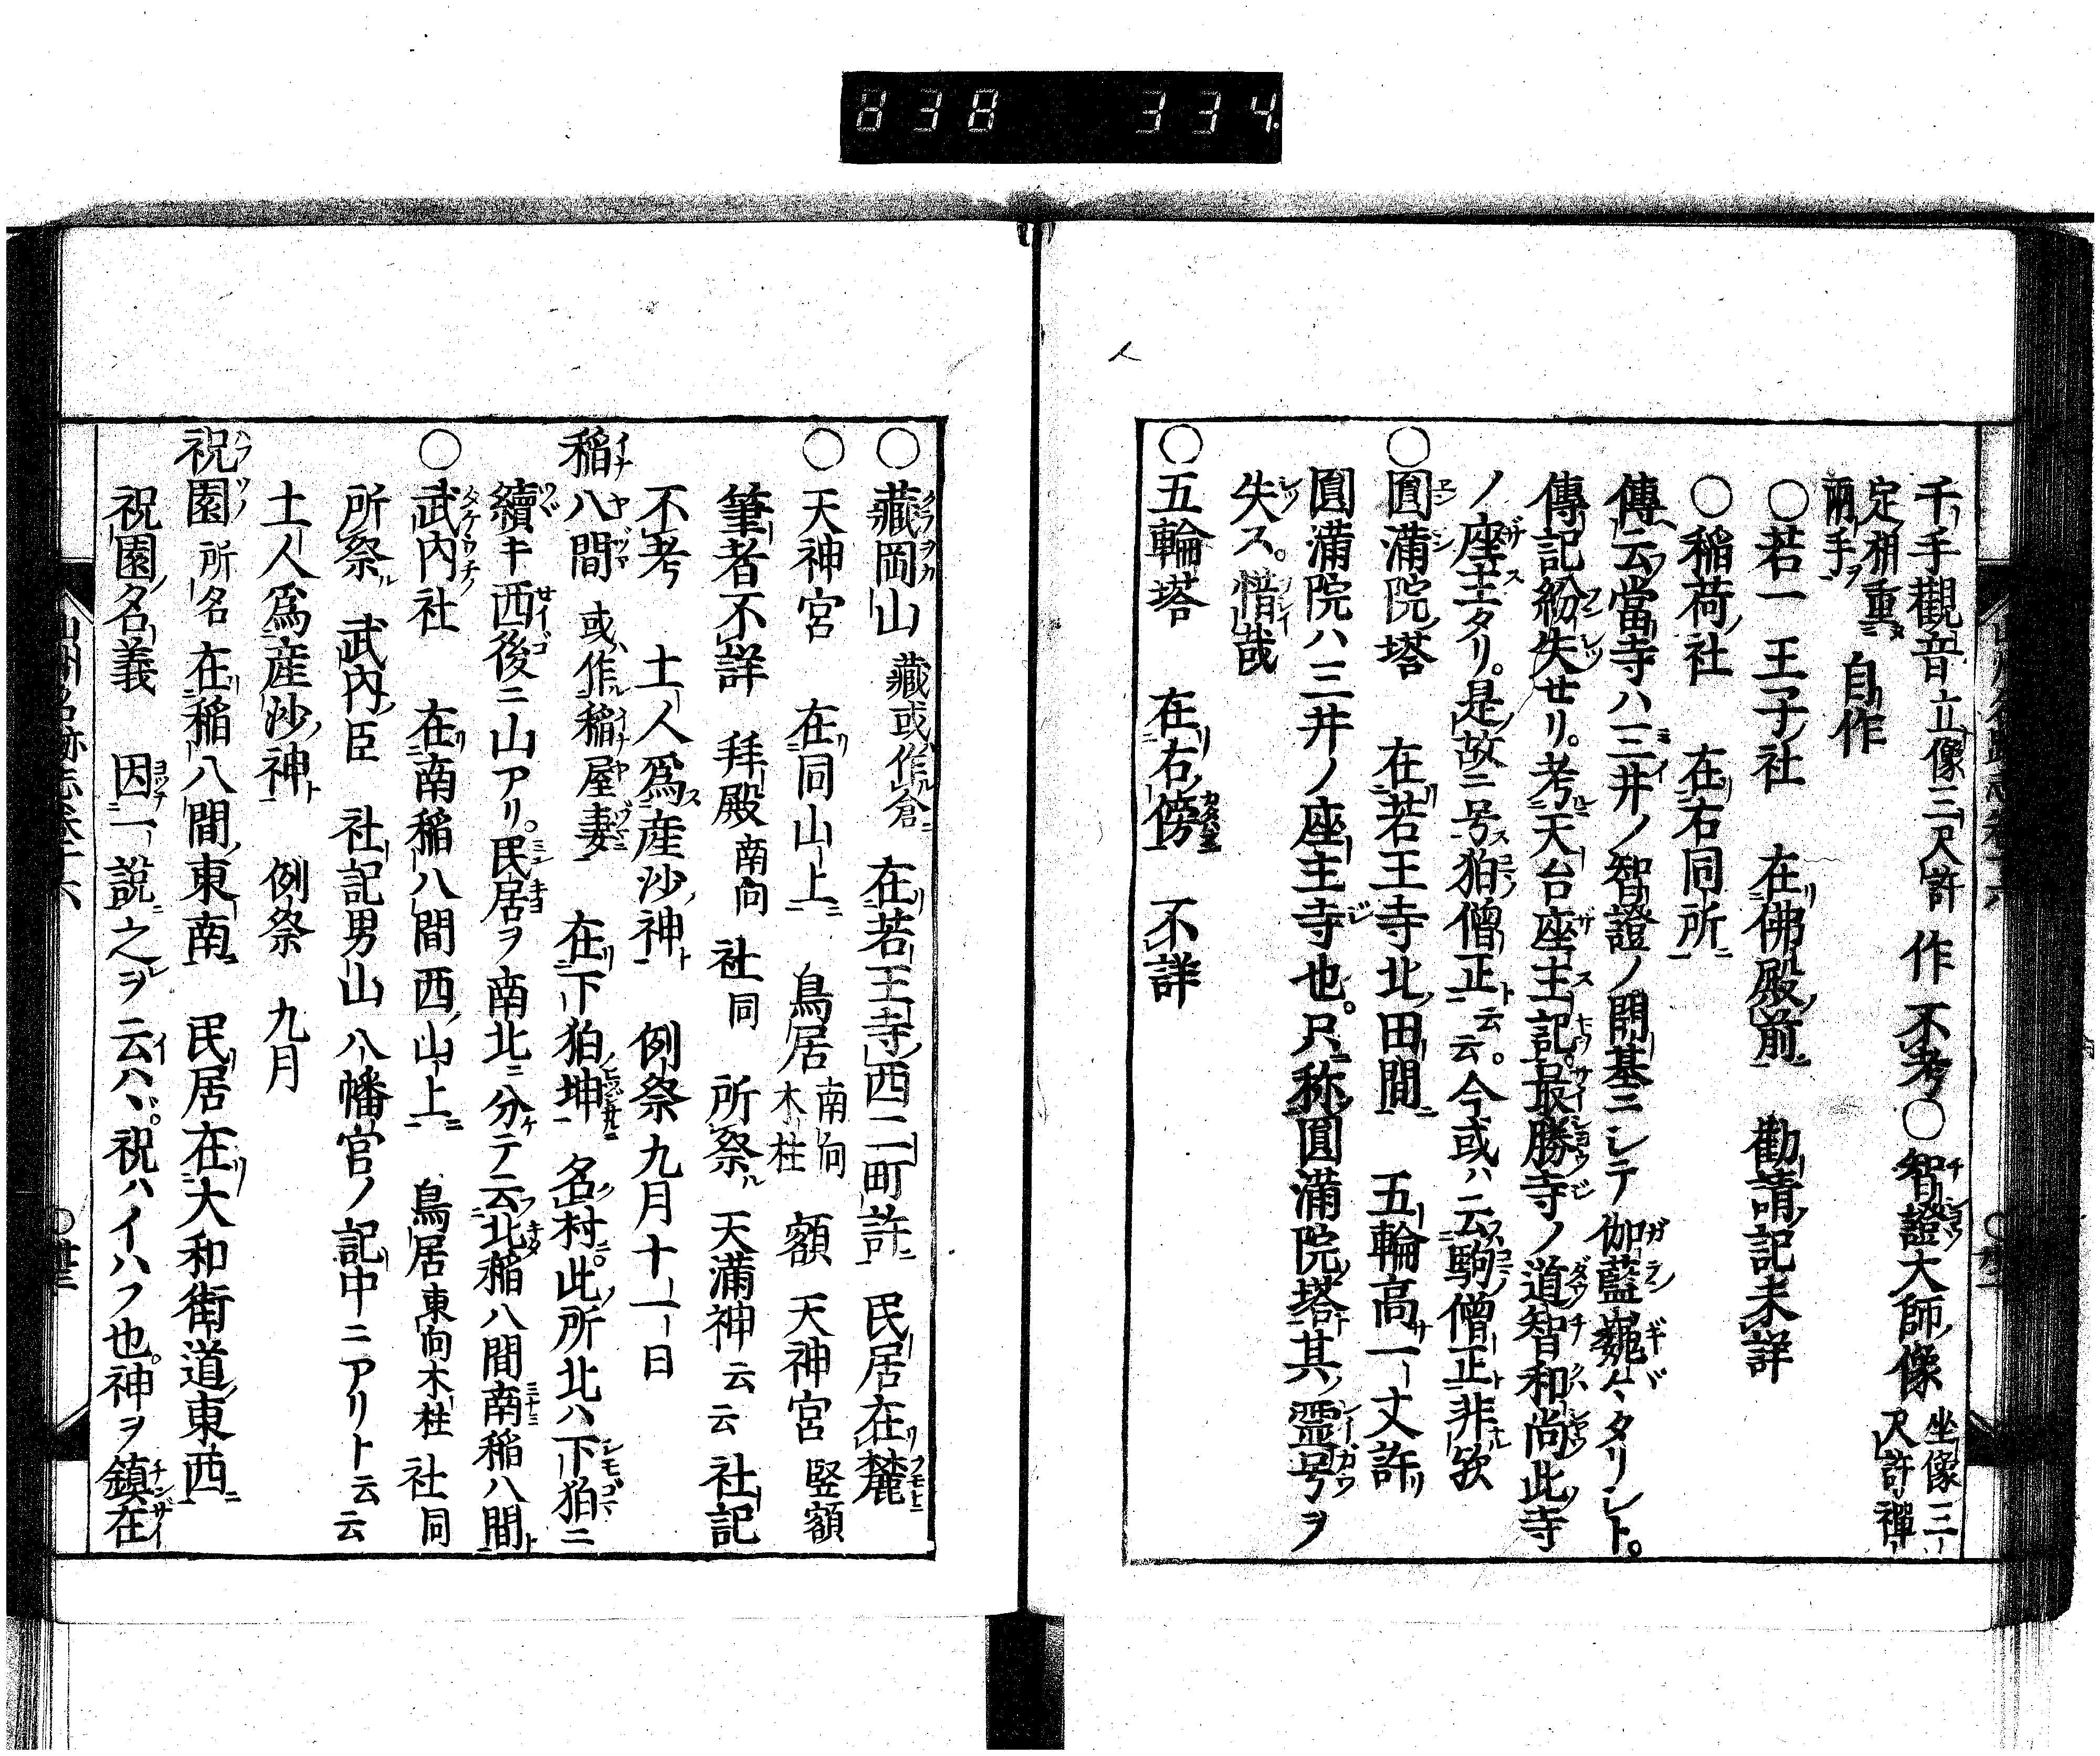 838 334
千手觀音立像三尺許 作不考○智證大師像 坐像三尺許禪
定相重兩手ヲ 自作
○若一王子社 在佛殿前 勸請記未詳
○稲荷社 在右同所
傳云當寺ハ三井ノ智證ノ開基ニシテ伽藍巍々タリシト。
傳記紛失セリ。考天台座主記最勝寺ノ道智和尚此寺
ノ座主タリ。是故ニ号狛僧正云云。今或ハ云駒僧正非欤
○圓滿院塔 在若王寺北田間 五輪高一丈許
圓滿院ハ三井ノ座主寺也。只称圓滿院塔其霊号ヲ
失ス。惜哉
○五輪塔 在右傍 不詳
○藏岡山 藏或作倉 在若王寺西二町許 民居在麓
○天神宮 在同山上 鳥居 南向木柱 額 天神宮 竪額
筆者不詳 拜殿 南向 社同 所祭 天滿神云云 社記
不考 土人爲産沙神 例祭九月十一日
稲八間 或作稲屋妻 在下狛坤 名村此所北ハ下狛ニ
續キ西後ニ山アリ。民居ヲ南北ニ分テ云北稲八間南稲八間
○武内社 在南稲八間西山上 鳥居 東向木柱 社同
所祭 武内臣 社記男山八幡宮ノ記中ニアリト云云
土人爲産沙神 例祭 九月
祝園 所名 在稲八間東南 民居在大和街道東西
祝園名義 因一説之ヲ云ハヾ。祝ハイハフ也。神ヲ鎮在